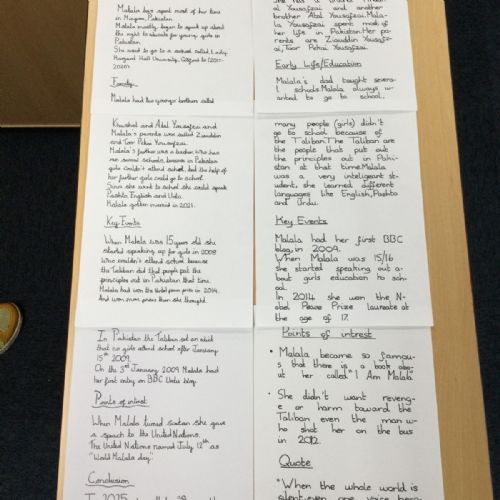 Malala has spent most of her time
in Mingora, Pakistan.
Malala mostly began to speak up about
the right to educate for young girls in
Pakistan.
She went to go to a school called Lady
Margaret Hall University, Oxford to (2017-
2020)
Family
Malala had two younger brothers called
Khushal and Atal Yousafzai and
Malala's parents was called Ziauddin
and Toor Pekai Yousafzai.
Malala's further was a teacher, who has
run several schools, because in Pakistan
girls couldn't attend school, but the help of
her further girls could go to school.
Since she went to school she could speak
Pashto, English and Urdu.
Malala gotten married in 2021.
Key Events
When Malala was 15 years old she
started speaking up for girls in 2008
who couldn't attend school because
the Taliban did that people put the
principles out in Pakistan that time.
Malala had won the Nobel peace prize in 2014.
And won more prizes than she thought.
In Pakistan the Taliban set an edict
that no girls attend school after January
15th 2009.
On the 3rd January 2009 Malala had
her first entry on BBC Urdu blog.
Points of intrest
When Malala turned sixteen she gave
a speech to the United Nations.
The United Nations named July 12th as
"World Malala day".
Conclusion
brother Atal Yousafzai. Mala-
la Yousafzai spent most of
her life in Pakistan. Her pa-
rents are Ziauddin Yousafz-
ai, Toor Pekai Yousafzai.
Early Life/Education
Malala's dad bought severa-
l schools. Malala always w-
anted to go to school,
many people (girls) didn't
go to school because of
the Taliban. The Taliban are
the people that put out
the principles out in Paki-
stan at that time. Malala
was a very inteligeant st-
udent, she learned different
languages like English, Pashto
and Urdu.
Key Events
Malala had her first BBC
blog, in 2009.
When Malala was 15/16
she started speaking out a-
bout girls education to sch-
ool.
In 2014 she won the N-
obel Peace Prize laureate at
the age of 17.
Points of intrest
• Malala became so famou-
s that there is a book abo-
ut her called "I Am Malala"
• She didn't want reveng-
e or harm toward the
Taliban even the man w-
ho shot her on the bus
in 2012.
Quote
"When the whole world is